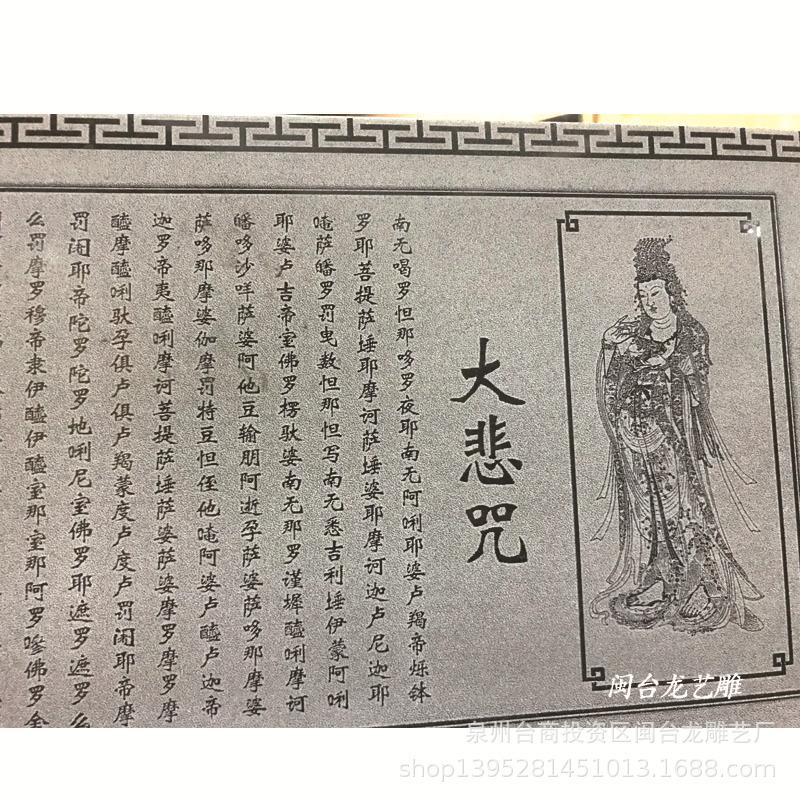 大悲咒
南无喝罗怛那哆罗夜耶南无阿唎耶婆卢羯帝烁钵
罗耶菩提萨埵耶摩诃萨埵婆耶摩诃迦卢尼迦耶
唵萨皤罗罚曳数怛那怛写南无悉吉利埵伊蒙阿唎
耶婆卢吉帝室佛罗楞驮婆南无那罗谨墀醯唎摩诃
皤哆沙咩萨婆阿他豆输朋阿逝孕萨婆萨哆那摩婆
萨哆那摩婆伽摩罚特豆怛侄他唵阿婆卢醯卢迦帝
迦罗帝夷醯唎摩诃菩提萨埵萨婆萨婆摩罗摩罗摩
醯摩醯唎驮孕俱卢俱卢羯蒙度卢度卢罚闍耶帝摩
罚闍耶帝陀罗陀罗地唎尼室佛罗耶遮罗遮罗么
么罚摩罗穆帝隶伊醯伊醯室那室那阿罗嘇佛罗舍
闽台龙艺雕
泉州台商投资区闽台龙雕艺厂
shop1395281451013.1688.com